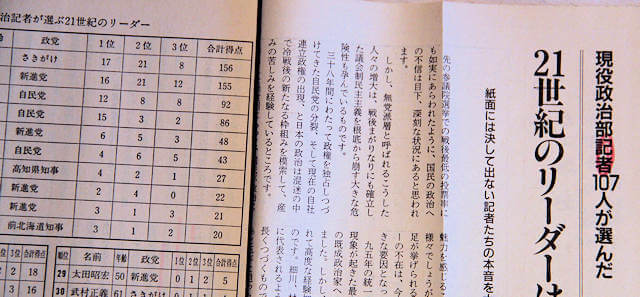 現役政治部記者107人が選んだ
21世紀のリーダーは
紙面には決して出ない記者たちの本音を
先の参議院選挙での戦後最低の投票率に
も如実にあらわれたように、国民の政治へ
の不信は目下、深刻な状況にあると思われ
ます。
しかし、無党派層と呼ばれるこうした
人々の増大は、戦後まがりなりにも確立し
た議会制民主主義を根底から崩す大きな危
険性も孕んでいるものです。
三十八年間にわたって政権を独占しつづ
けてきた自民党の分裂、そして現在の自社
連立政権の出現、と日本の政治は混迷の中
で冷戦後の新たなる枠組みを模索して、産
みの苦しみを経験しているところです。
魅力を感じる
様々でしょうが
足が挙げられ
ーの不在は、今
きな要因となっ
九五年の統一
現象が起き
の既成政治家へ
ました。しかし
れて高度な経
のです。細川、
に代表されるよ
長くつづくもので
治記者が選ぶ21世紀のリーダー
政党 1位 2位 3位 合計得点
さきがけ 17 21 8 156
新進党 16 21 12 155
自民党 12 8 8 92
自民党 15 3 2 86
新進党 6 5 3 48
自民党 4 6 5 43
高知県知事 4 2 1 27
新進党 2 4 0 22
新進党 3 1 3 21
前北海道知事 3 1 2 20
合計得点 順位 名前 年齢 政党 1位 2位 3位 合計得点
2 18 29 太田昭宏 50 新進党 0 1 2 5
3 16 30 武村正義 61 さきがけ